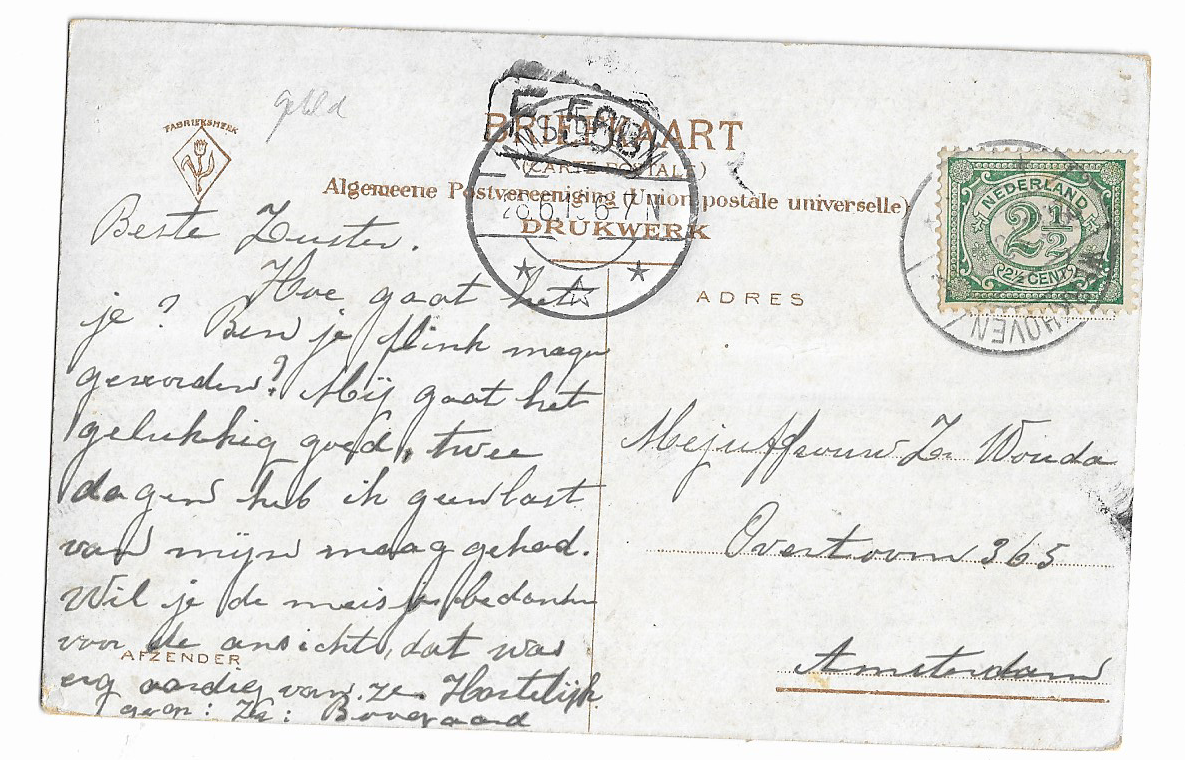 getild
FABRIEKSMERK
BRIEFKAART
(CARTE POSTALE)
Algemeene Postvereeniging (Union postale universelle)
DRUKWERK
28.6.1 6-7.N
ADRES
NEDERLAND
2½
2½ CENT
HOVEN
Beste Zuster.
Hoe gaat het
je? Ben je flink mager
geworden? Mij gaat het
gelukkig goed, twee
dagen heb ik geen last
van mijn maag gehad.
Wil je de meisjes bedanken
voor de ansicht, dat was
erg aardig van ze. Hartelijk
gegr: Zr: Boogaard
AFZENDER
Mejuffrouw Zr Wouda
Overtoom 365
Amsterdam